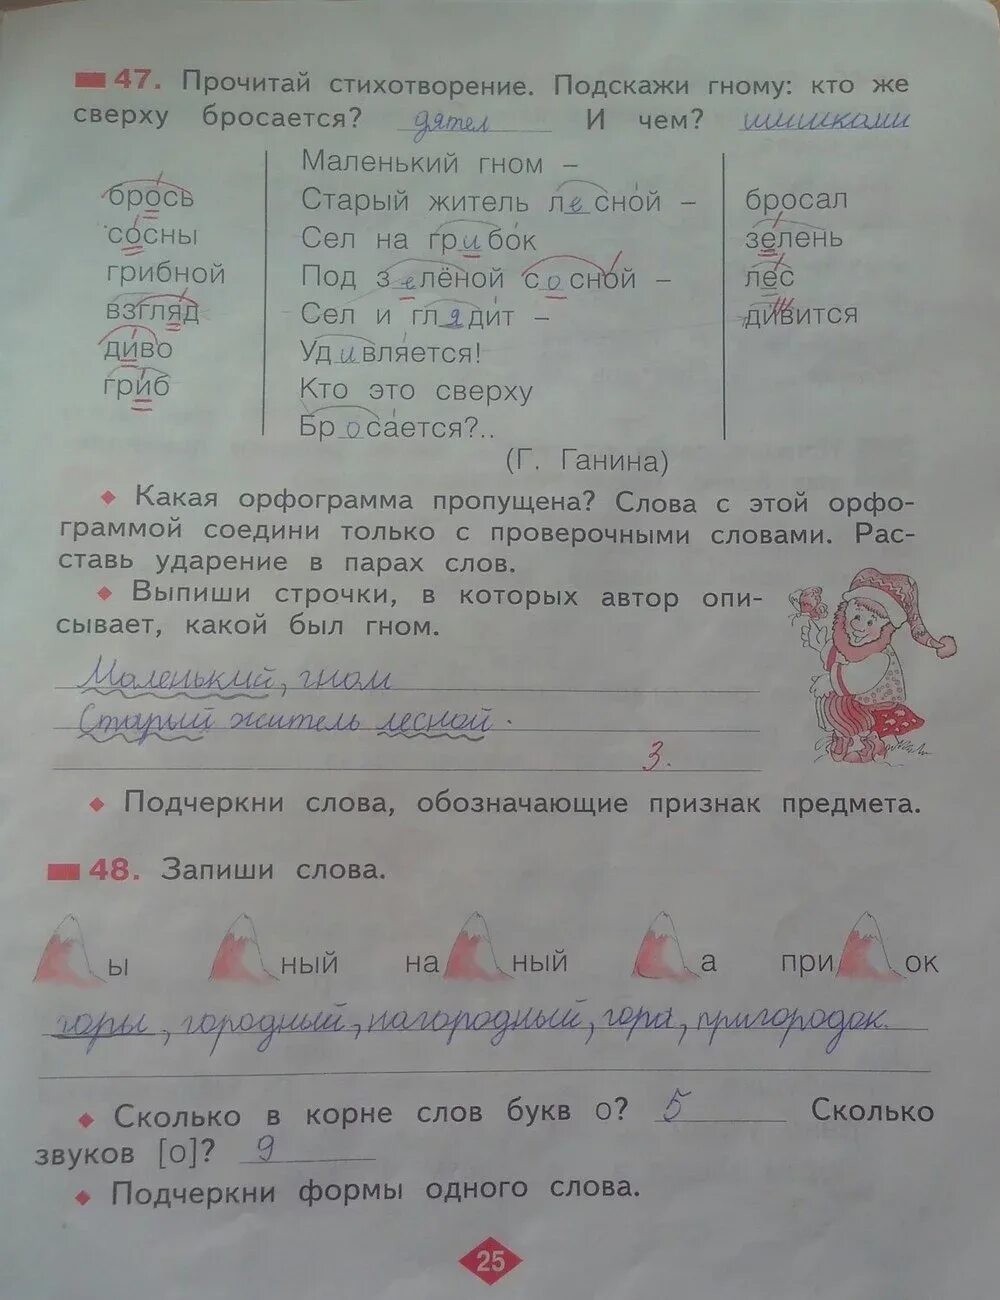 47. Прочитай стихотворение. Подскажи гному: кто же
сверху бросается? дятел И чем? шишками
брось
сосны
грибной
взгляд
диво
гриб
Маленький гном –
Старый житель лесной –
Сел на грибок
Под зелёной сосной –
Сел и глядит –
Удивляется!
Кто это сверху
Бросается?..
(Г. Ганина)
бросал
зелень
лес
дивится
Какая орфограмма пропущена? Слова с этой орфо-
граммой соедини только с проверочными словами. Рас-
ставь ударение в парах слов.
Выпиши строчки, в которых автор опи-
сывает, какой был гном.
Маленький, гном
Старый житель лесной.
3.
Подчеркни слова, обозначающие признак предмета.
48. Запиши слова.
ы ный на ный а при ок
горы, городный, нагородный, гора, пригородок.
Сколько в корне слов букв о? 5 Сколько
звуков [о]? 9
Подчеркни формы одного слова.
25